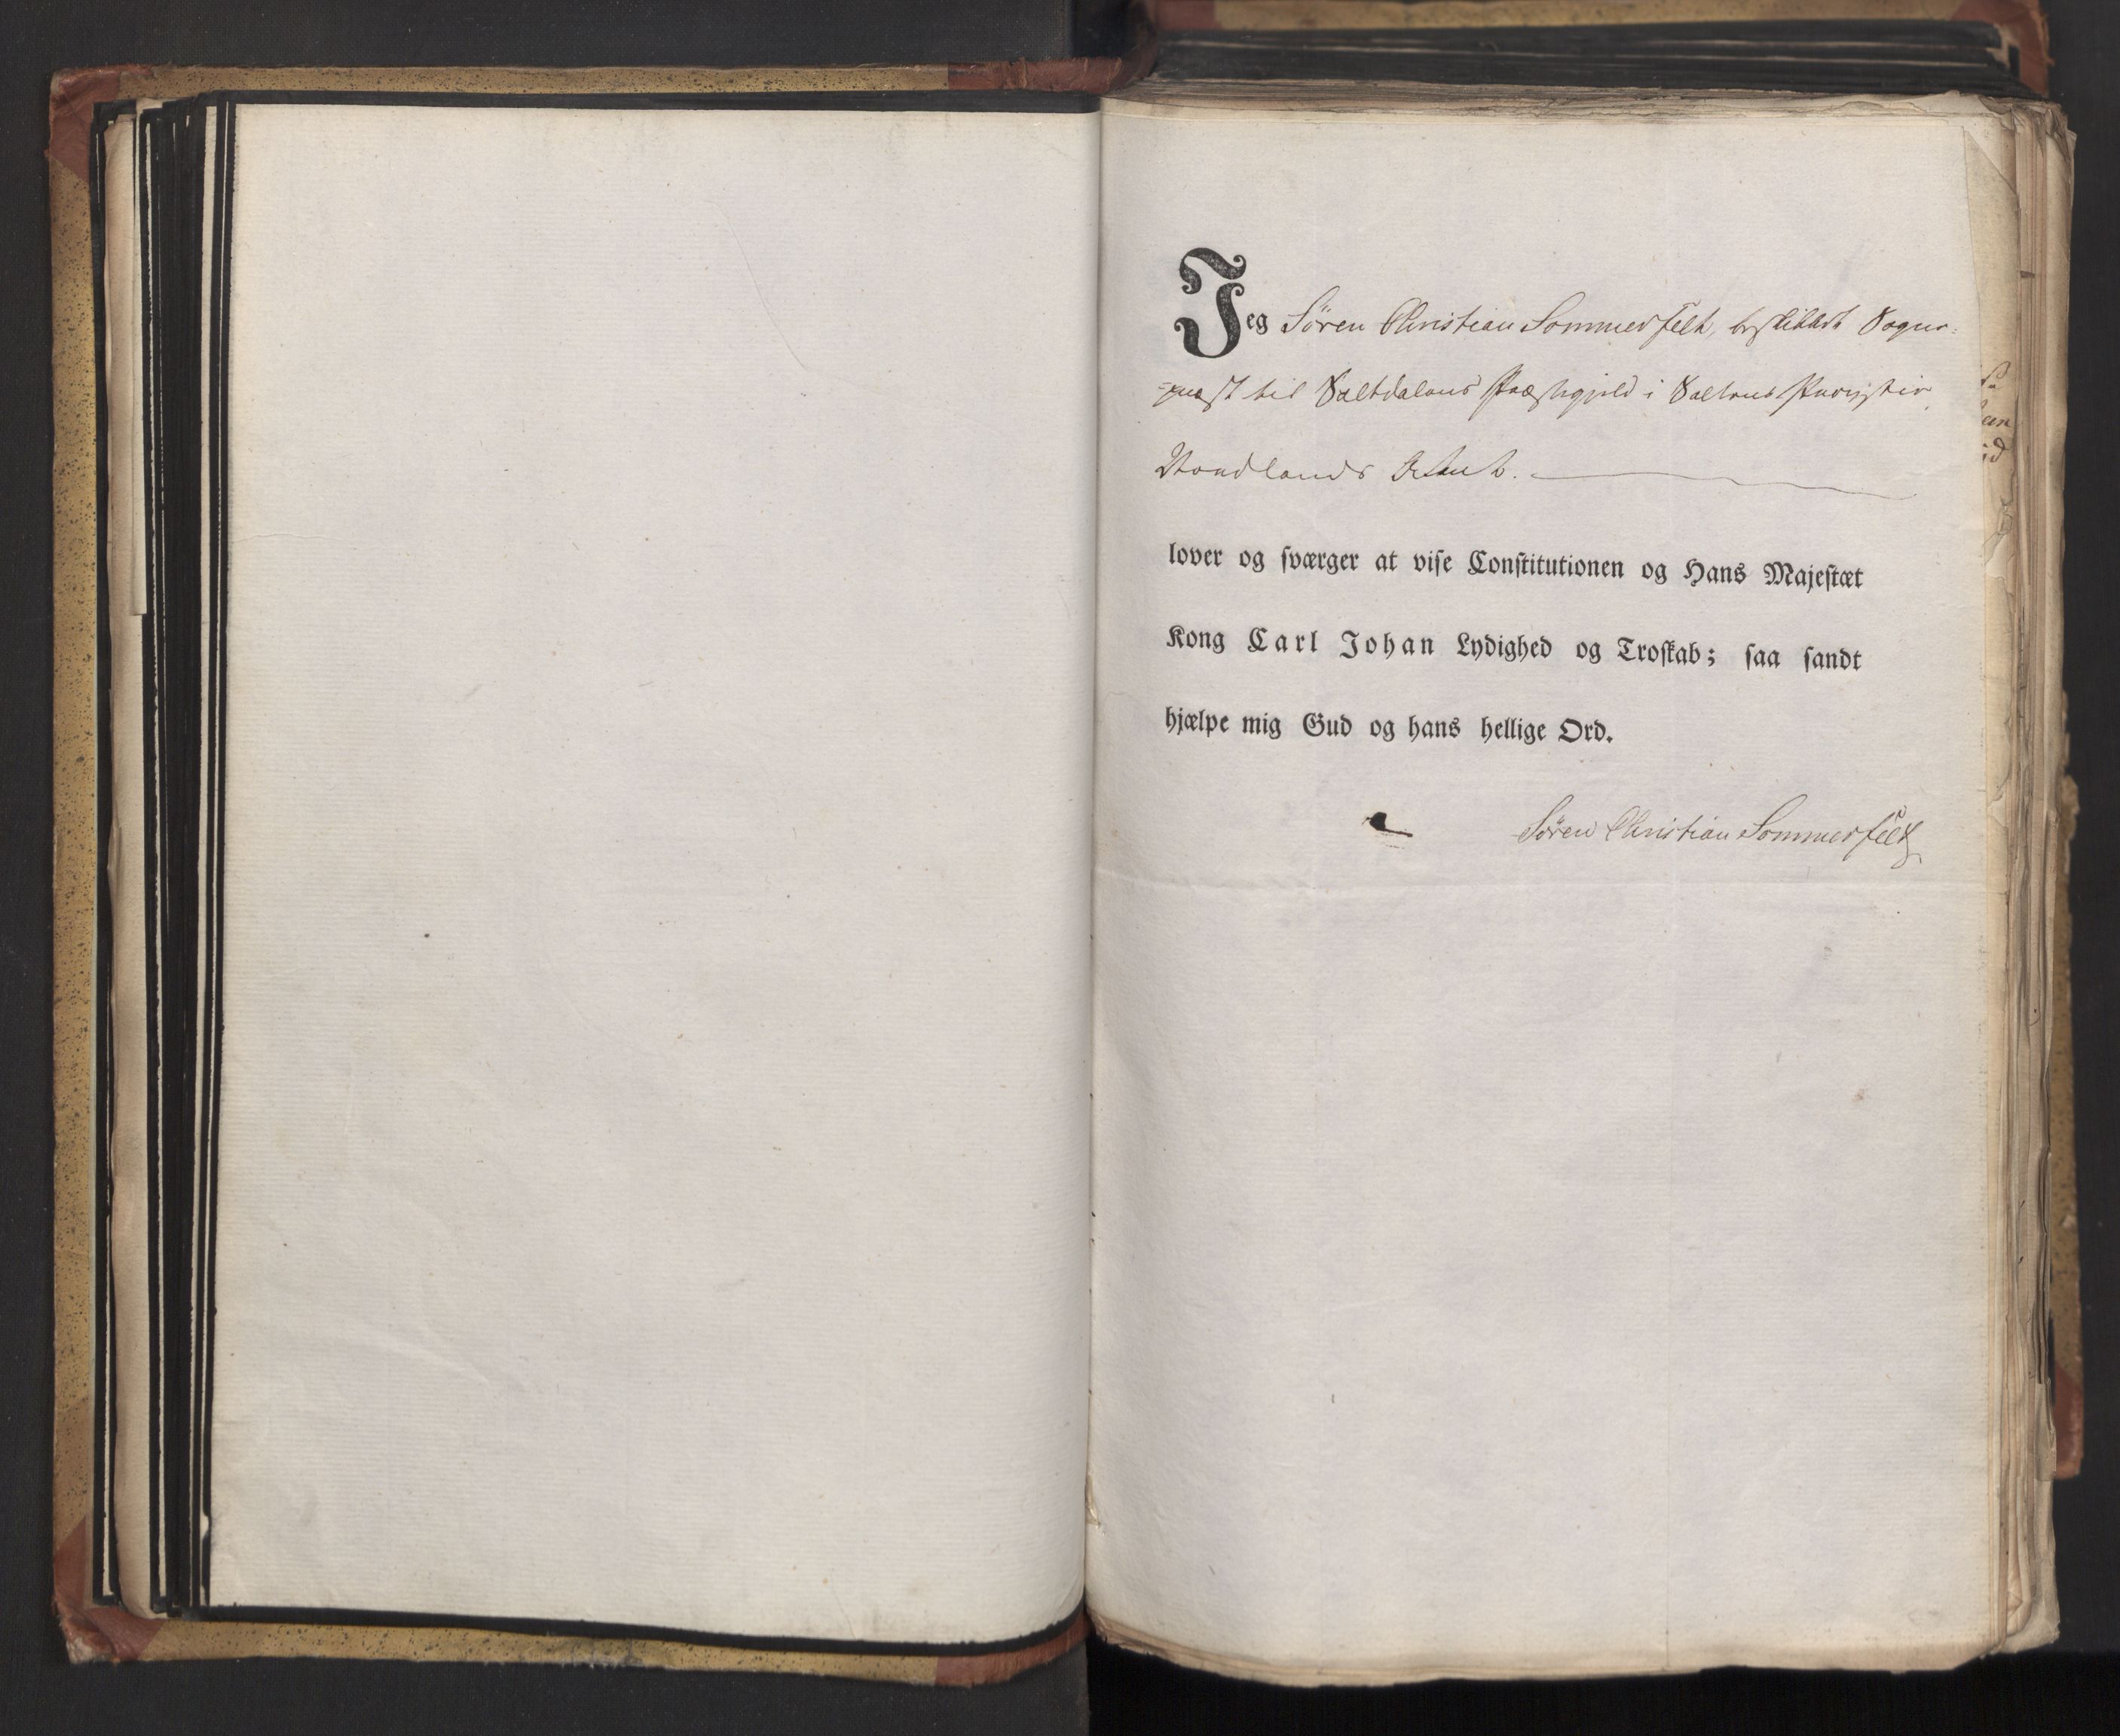 Jeg Sören Christian Sommerfelt, beskikket Sogne-
=præst til Saltdalens Præstegjeld i Saltens Provstie
Nordlands Amt.
lover og sværger at vise Constitutionen og Hans Majestæt
Kong Carl Johan Lydighed og Troskab; saa sandt
hjælpe mig Gud og hans hellige Ord.
Sören Christian Sommerfelt